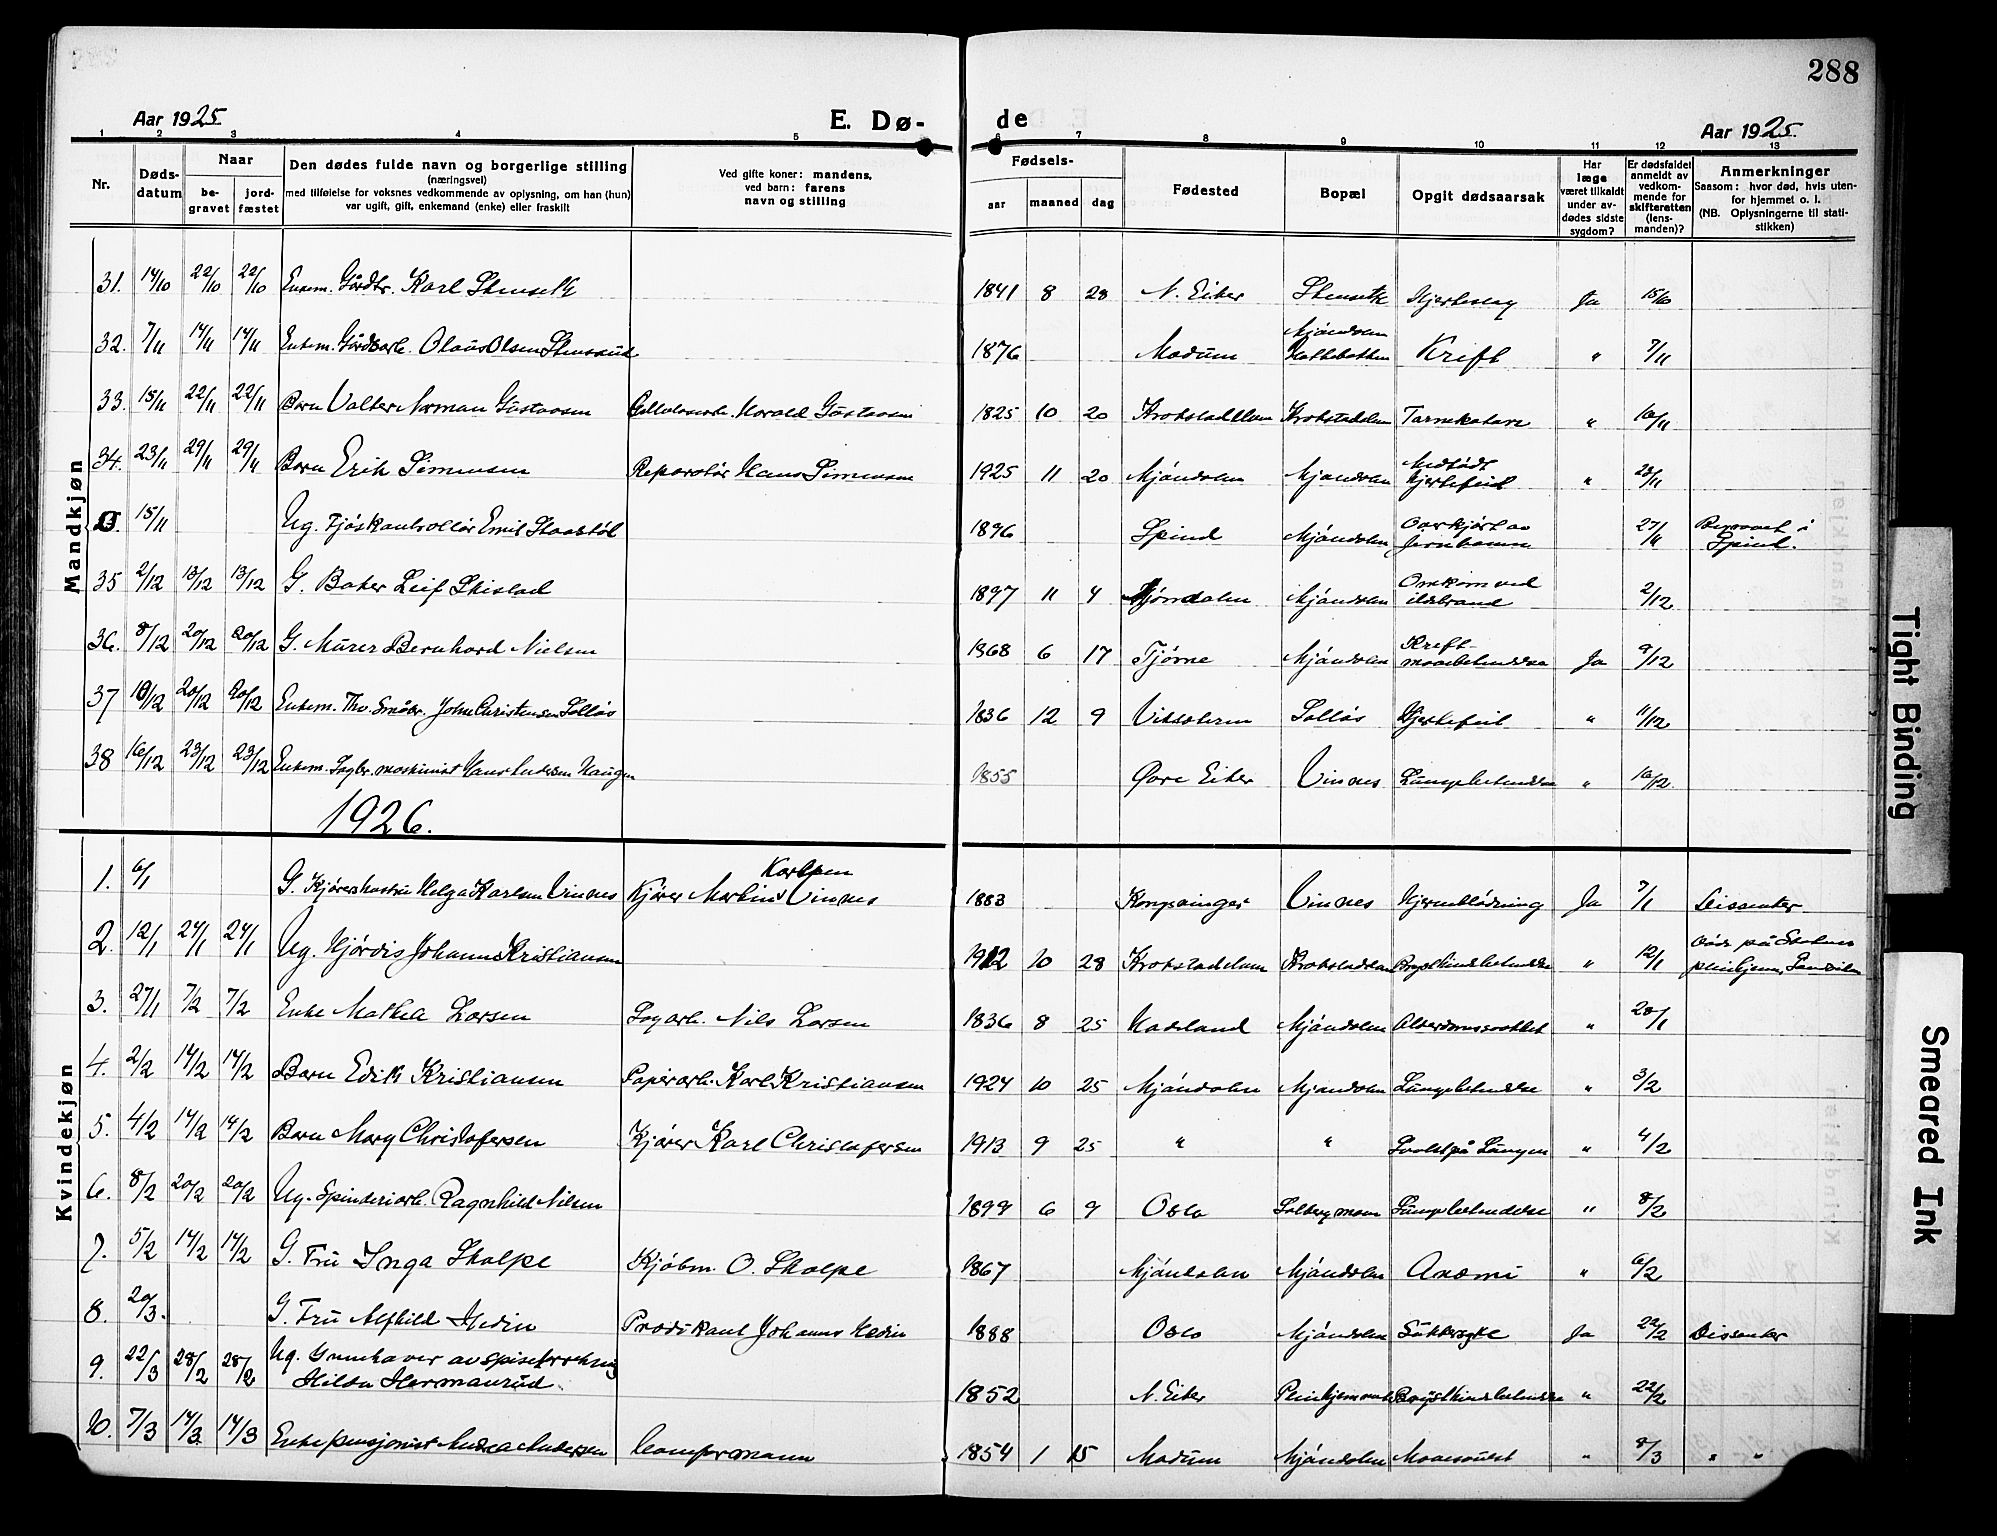 288
Aar 1925
E. Dø- de
Aar 1925.
1 2 3 4 5 6 7 8 9 10 11 12 13
Nr.
Døds-
datum
Naar
be-
gravet
jord-
fæstet
Den dødes fulde navn og borgerlige stilling
(næringsvei)
med tilføielse for voksnes vedkommende av oplysning, om han (hun)
var ugift, gift, enkemand (enke) eller fraskilt
Ved gifte koner: mandens,
ved barn: farens
navn og stilling
Fødsels-
aar maaned dag
Fødested
Bopæl
Opgit dødsaarsak
Har
læge
været tilkaldt
under av-
dødes sidste
sygdom?
Er dødsfaldet
anmeldt av
vedkom-
mende for
skifteretten
(lens-
manden)?
Anmerkninger
Saasom: hvor død, hvis uten-
for hjemmet o. l.
(NB. Oplysningerne til stati-
stikken)
Mandkjøn
31. 14/10 22/10 22/10 Enkem. Gårdbr. Karl Stenseth 1841 8 28 N. Eiker Stenseth Hjerteslag Ja 15/10
32. 7/11 14/11 14/11 Enkem. Gårdsarb. Olaus Olsen Stensrud 1876 Modum Mjøndalen Kræft " 7/11
33. 15/11 22/11 22/11 Barn Valter Norman Gustavsen Cellulosearb. Harald Gustavsen 1825 10 20 Krokstadelven Krokstadelven Tarmkatarr " 16/11
34. 23/11 29/11 29/11 Barn Erik Simensen Reparatør Hans Simensen 1925 11 20 Mjøndalen Mjøndalen Medfødt hjertefeil " 23/11
15/11 Ug. Fjøskontrollør Emil 1896 Spind Mjøndalen Overkjørt av jernbanen 27/11 Begravet i Spind.
35 2/12 13/12 13/12 G. Baker Leif Skistad 1897 11 4 Mjøndalen Mjøndalen Omkom ved ildebrand 2/12
36. 8/12 20/12 20/12 G. Murer Bernhard Nielsen 1868 6 17 Tjøme Mjøndalen Kræft- Ja 9/12
37 10/12 20/12 20/12 Enkem. Småbr. John Christensen Solløs 1836 12 9 Solløs Hjertefeil " 11/12
38 16/12 23/12 23/12 Enkem. Sagbr. maskinist Hans Andersen Haugen 1855 Øvre Eiker Vinnes Lungebetendelse " 16/12
1926.
Kvindekjøn
1. 6/1 G. Kjørerhustru Helga Karlsen Vinnes Kjører Martin Karlsen Vinnes 1883 Kongsvinger Vinnes Hjerneblødning Ja 7/1 Dissenter
2. 12/1 24/1 24/1 Ug. Hjørdis Johanne Kristiansen 1912 10 28 Krokstadelven Krokstadelven Brysthindebetendelse " 12/1 Død på
3. 27/1 7/2 7/2 Enke Mathea Larsen Sagarb. Nils Larsen 1836 8 25 Hadeland Mjøndalen Alderdomssvakhet " 28/1
4. 2/2 14/2 14/2 Barn Edith Kristiansen Papirarb. Karl Kristiansen 1924 10 25 Mjøndalen Mjøndalen Lungebetendelse " 3/2
5. 4/2 14/2 14/2 Barn Mary Christofersen Kjører Karl Christofersen 1913 9 25 " " Svulst på Lungen " 4/2
6. 8/2 20/2 20/2 Ug. Spinderiarb. Ragnhild Nilsen 1899 6 9 Oslo Solbergmoen Lungebetendelse " 8/2
7. 5/2 14/2 14/2 G. Fru Inga Skalpe Kjøbm. O. Skalpe 1867 Mjøndalen Mjøndalen Anæmi " 6/2
8. 20/3. G. Fru Alfhild Hedin Prædikant Johannes Hedin 1888 Oslo Mjøndalen Sukkersyke Ja 22/2 Dissenter
9. 22/3 28/2 28/2 Ug. Innehaver av spiseforretning
Hilda Hermanrud. 1852 N. Eiker Brysthindebetendelse " 22/2
10. 7/3 14/3 14/3 Enkepensjonist Andrea Andersen Kamfermann 1854 1 15 Modum Mjøndalen Mavesykdom " 8/3 " "
Tight Binding
Smeared Ink